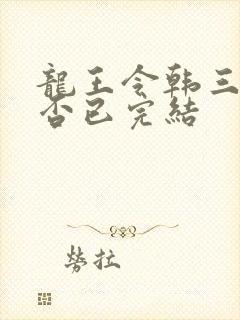 龍王令韩三
否已完結
勞拉